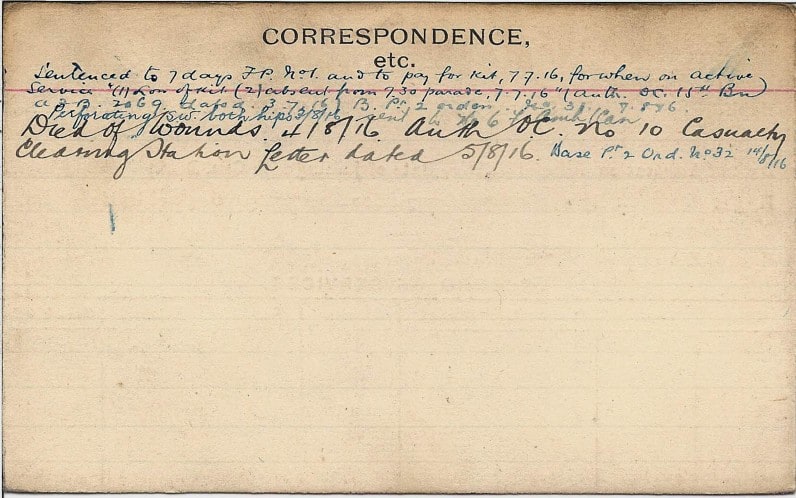 CORRESPONDENCE,
etc.
Sentenced to 7 days F.P. No1. and to pay for Kit, 7.7.16, for when on active
Service "(1) Loss of Kit (2) absent from 7.30 parade, 7.7.16" (Auth. O.C. 15th Bn
B. Pt. 2 orden
Perforating S.W. both hips 3/8/16 sent to No 6
Died of Wounds. 4/8/16 Auth OC. No 10 Casualty
Clearing Station Letter dated 5/8/16. Base Pt 2 Ord. No 32 14/8/16